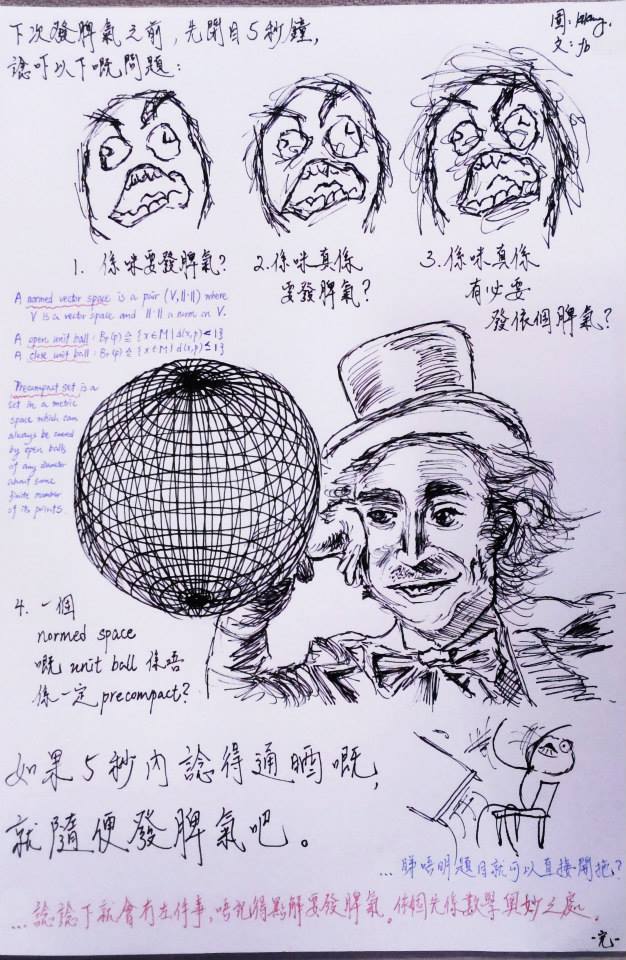 下次發脾氣之前，先閉目5秒鐘，
諗吓以下嘅問題：
圖：
文：fb
1. 係咪要發脾氣？
2. 係咪真係
要發脾氣？
3. 係咪真係
有必要
發依個脾氣？
A normed vector space is a pair (V, ‖·‖) where
V is a vector space and ‖·‖ a norm on V.
A open unit ball : Br(p) ≙ {x∈M | d(x,p) < 1}
A close unit ball : Br(p) ≙ {x∈M | d(x,p) ≤ 1}
Precompact set is a
set in a metric
space which can
always be covered
by open balls
of any diameter
about some
finite number
of its points
4. 一個
normed space
嘅 unit ball 係唔
係一定 precompact?
如果5秒內諗得通晒嘅，
就隨便發脾氣吧。
...睇唔明題目就可以直接開拖？
...諗諗下就會冇左件事，唔記得點解要發脾氣。依個先係數學奧妙之處。
-完-